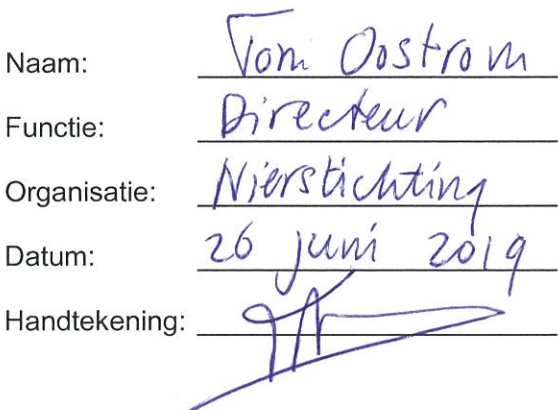 Naam: Tom Oostrom
Functie: Directeur
Organisatie: Nierstichting
Datum: 26 juni 2019
Handtekening: